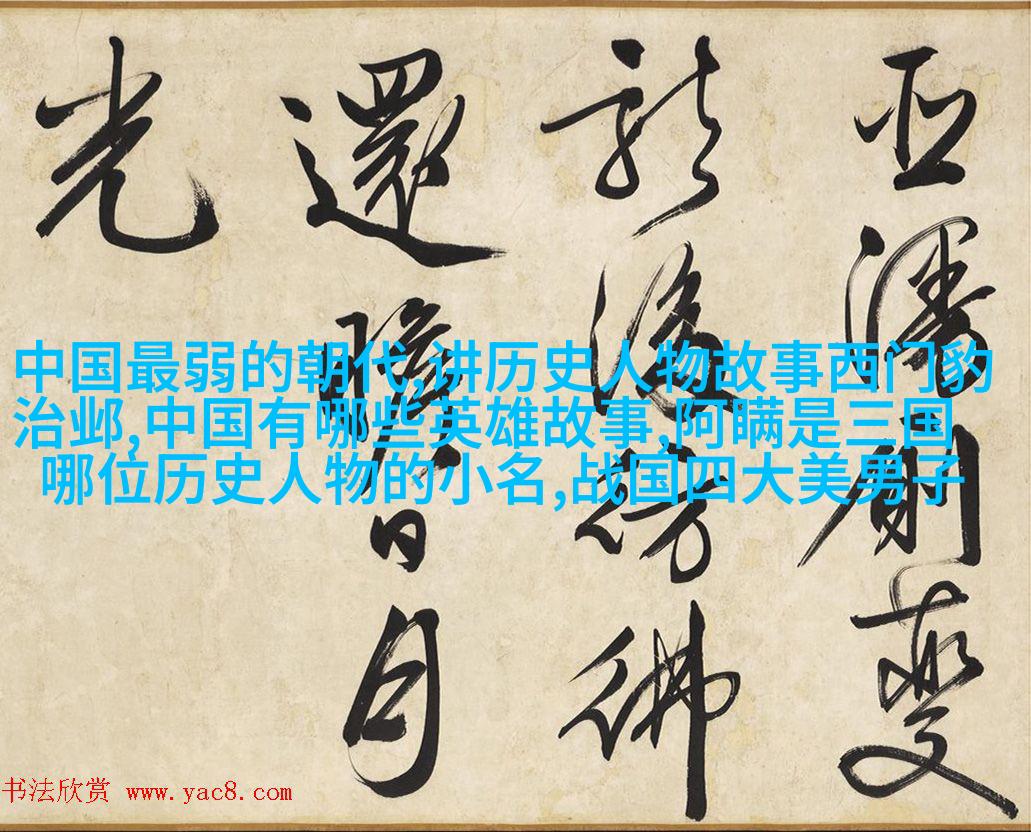 後彷彿
還瞻日月
光
中国最弱的朝代,讲历史人物故事西门豹
治邺,中国有哪些英雄故事,阿瞒是三国
哪位历史人物的小名,战国四大美男子
书法欣赏 www.yac8.com